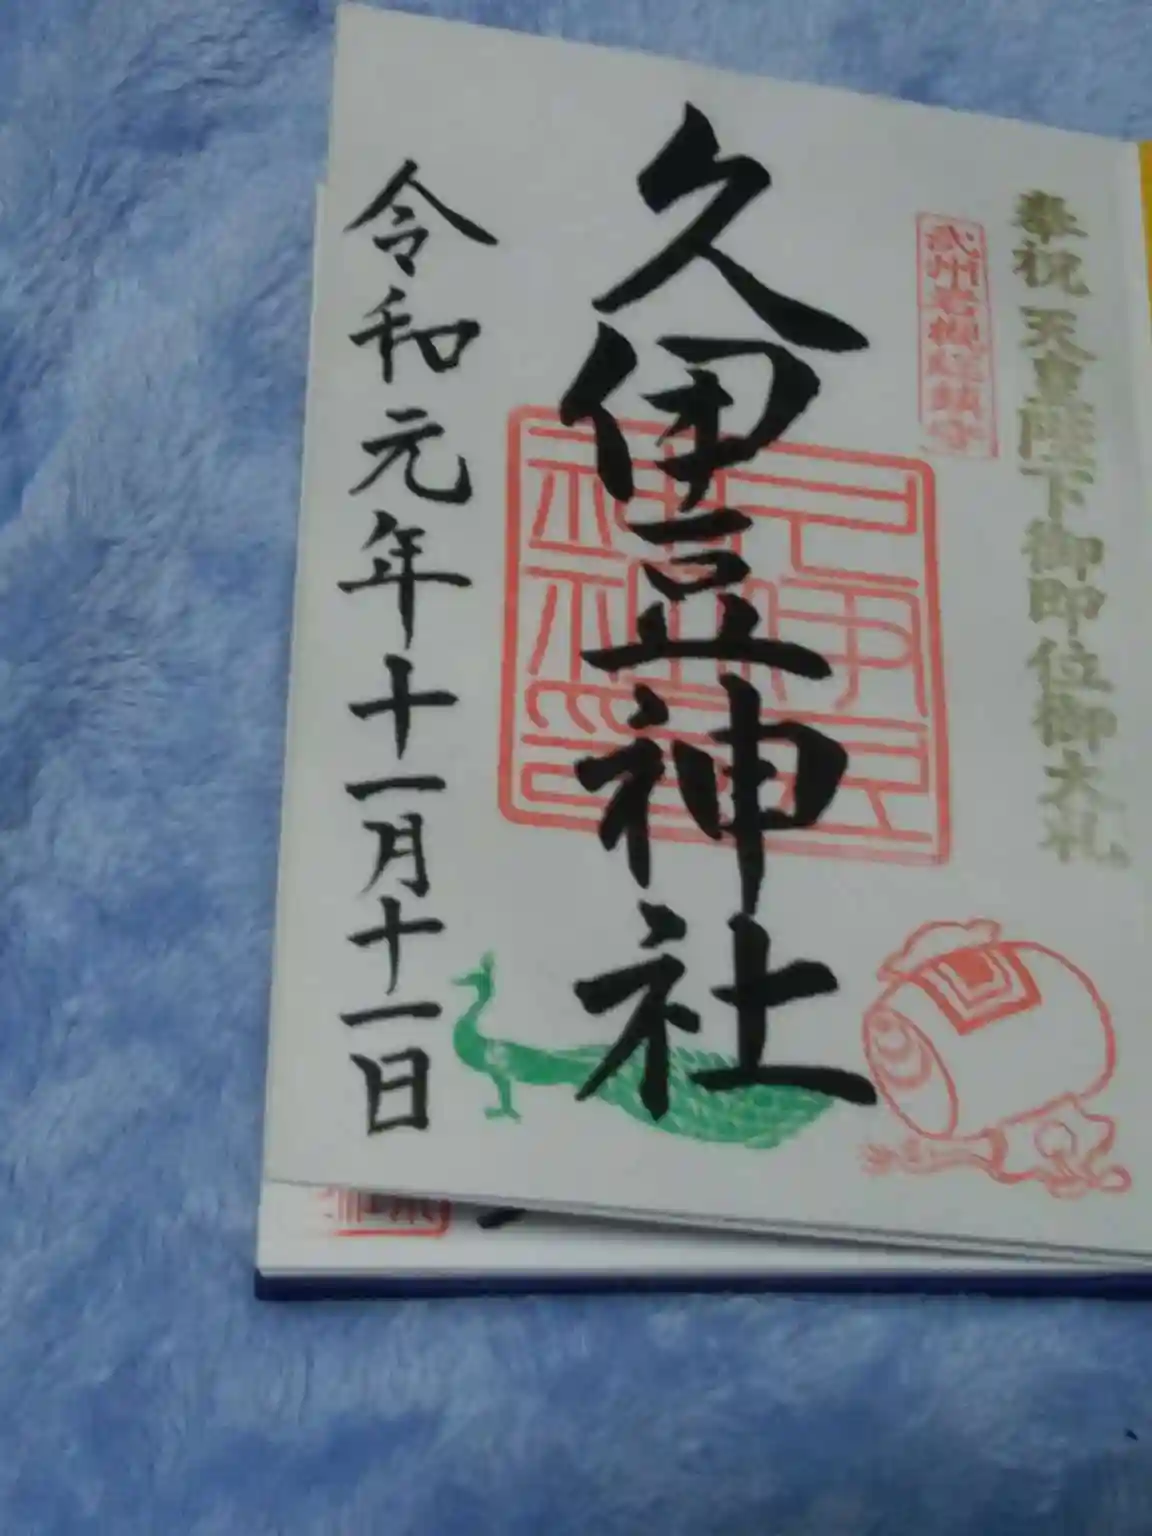 奉祝 天皇陛下御即位御大礼
武州岩槻総鎮守
久伊豆神社
令和元年十一月十一日